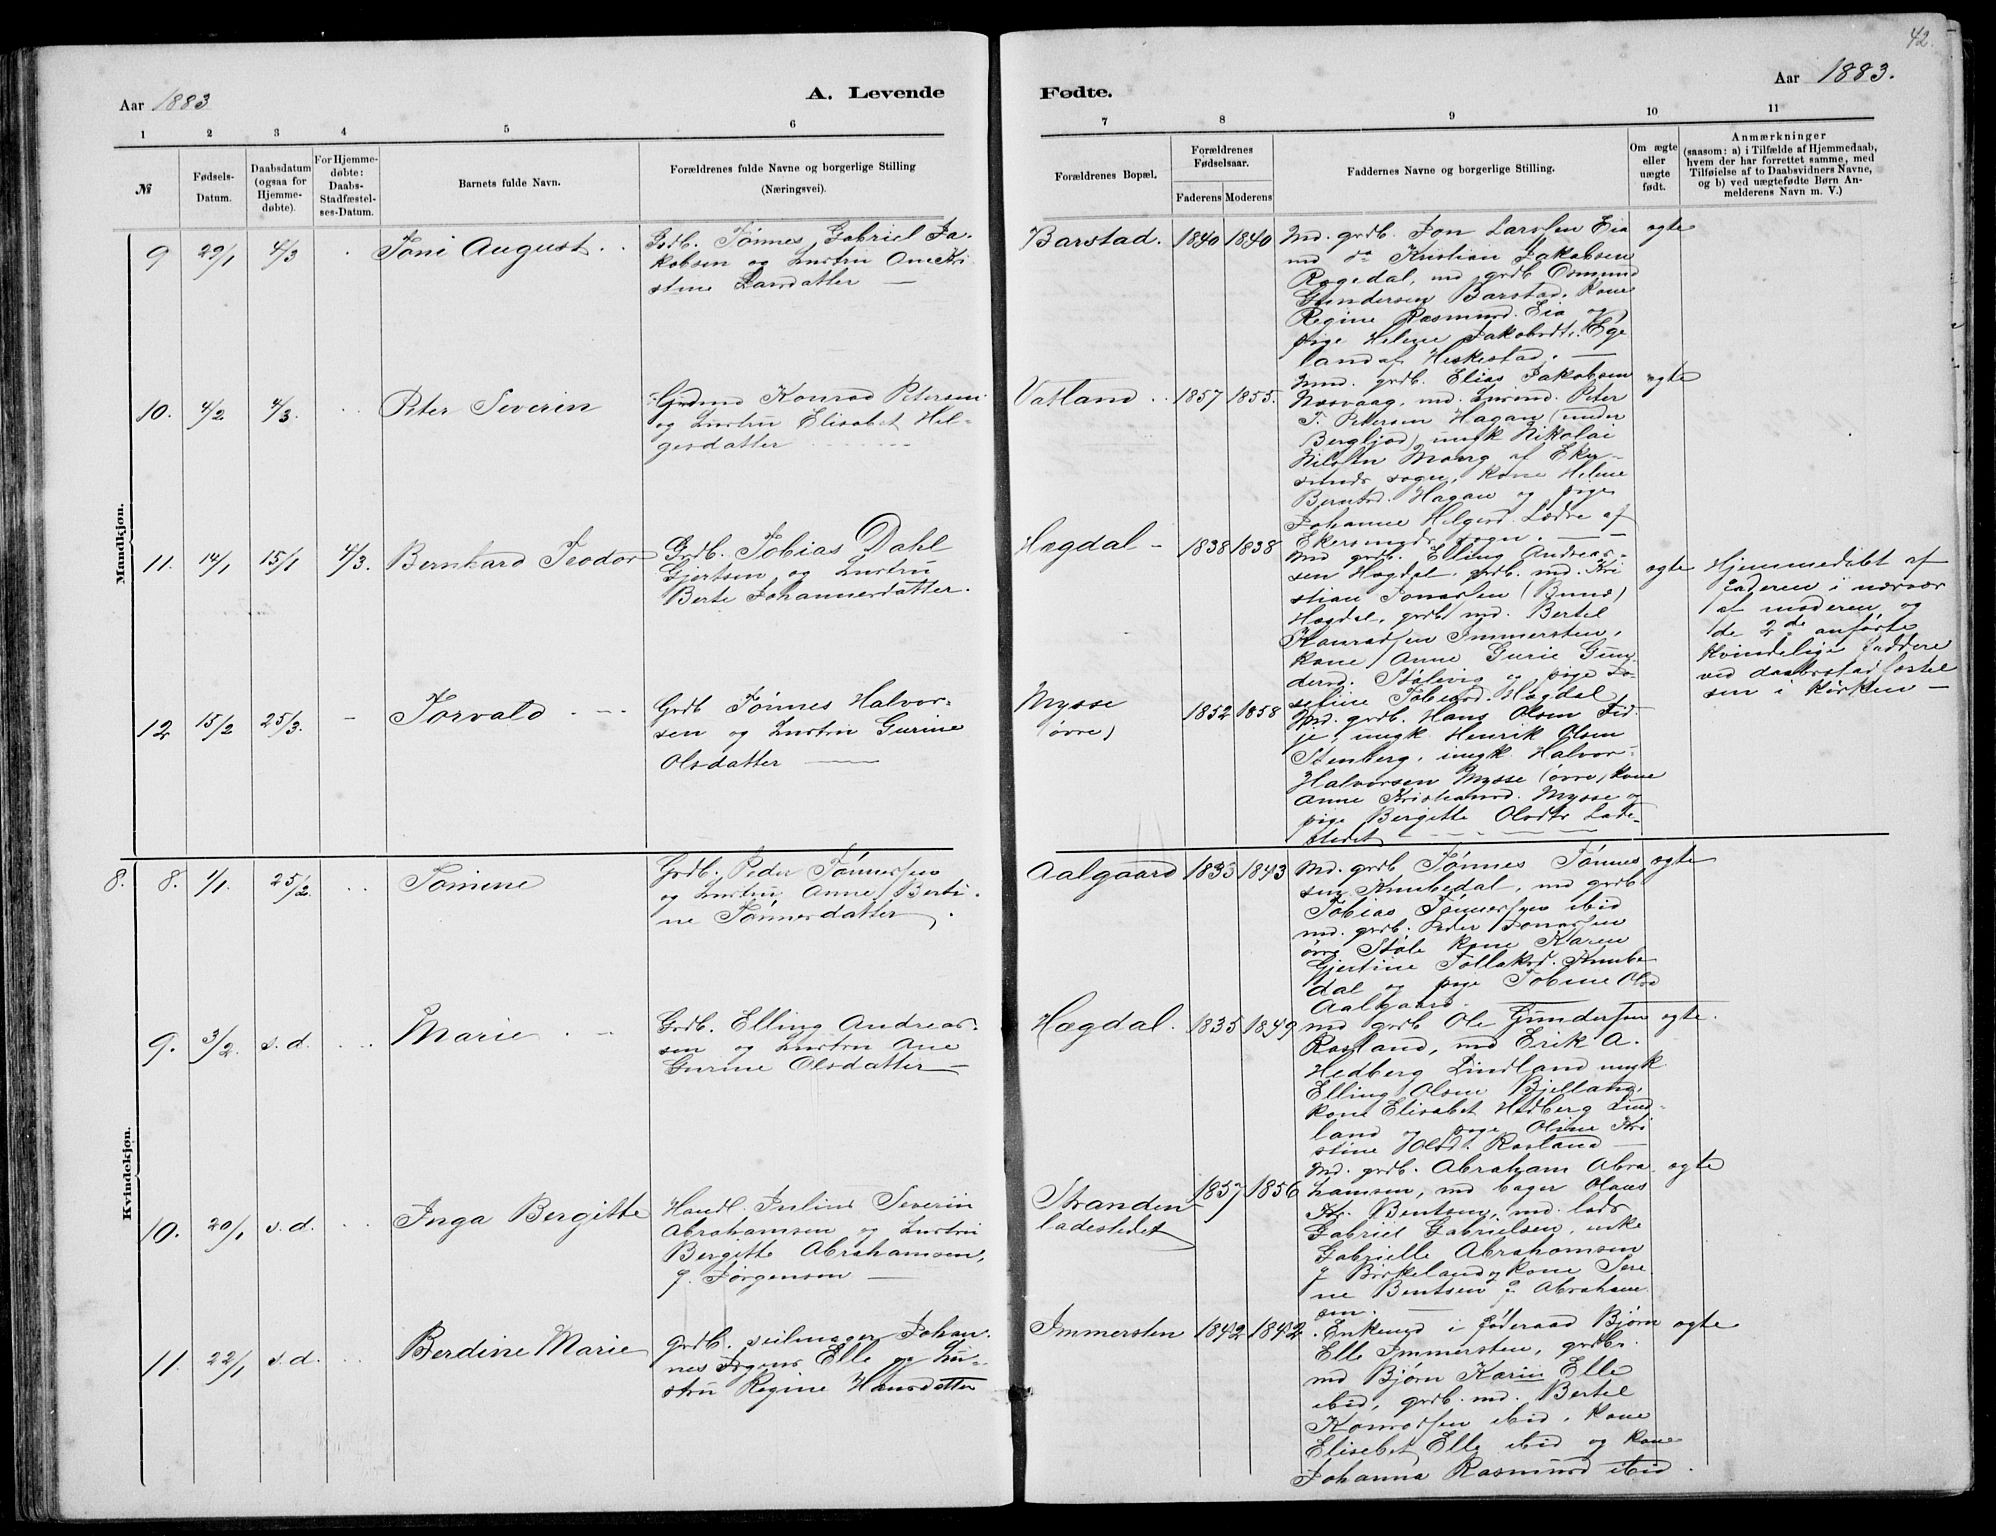 42.
Aar 1883
A. Levende
Fødte.
Aar 1883.
1 2 3 4 5 6
7 8 9 10 11
№
Fødsels-
Datum.
Daabsdatum
(ogsaa for
Hjemme-
døbte).
For Hjemme-
døbte:
Daabs-
Stadfæstel-
ses-Datum.
Barnets fulde Navn.
Forældrenes fulde Navne og borgerlige Stilling
(Næringsvei).
Forældrenes Bopæl.
Forældrenes
Fødselsaar.
Faderens Moderens
Faddernes Navne og borgerlige Stilling.
Om ægte
eller
uægte
født.
Anmærkninger
(saasom: a) i Tilfælde af Hjemmedaab,
hvem der har forrettet samme, med
Tilføielse af to Daabsvidners Navne,
og b) ved uægtefødte Børn An-
melderens Navn m. V.)
Mandkjøn.
9 29/1 4/3 Toni August
Grdb. Tønnes Gabriel Ja-
kobsen og hustru Ane Kri
stine Larsdatter —
Barstad. 1840 1840
Md. grdb. Jon Larssen Eia
md do Kristian Jakobsen
Rogedal, md grdb Osmund
Gundersen Barstad, kone
Regine Rasmusd. Eia og
pige Helene Jakobsdt. Ege
land af Heskestad. —
ægte
10. 4/2 4/3. Peter Severin
Konrad Petersen
og hustru Elisabet Hel-
gesdatter
Vatland 1857 1855.
grdb. Elias Jakobsen
Nesvaag, md. Peter
T. Petersen Hagan (under
Bergljod), ungk Nikolai
Nilssen Mong af Eker-
sunds sogn, kone Helene
Berntsd. Hagan og pige
Johanne Helgesd. Lædre af
Ekersunds sogn. —
ægte
11. 14/1 15/1 4/3. Bernhard Teodor
Grdb. Tobias Dahl
Gjertsen og hustru
Berte Johannesdatter.
Hægdal - 1838 1838
Md grdb. Elling Andreas-
sen Hægdal, grdb. md. Kri
stian Jonassen
Hægdal, grdb md. Bertel
Konradsen Immersten,
kone Anne Gurie Gun-
dersd. Stølevig og pige Jo-
sefine Tobiasd. Hægdal
ægte
Hjemmedøbt af
faderen i nærvær
af moderen og
de 2de anførte
kvindelige faddere
ved daabsstadfæstel
sen i kirken —
12 15/2 25/3. - Torvald
Grdb Tønnes Halvor-
sen og hustru Gurine
Olsdatter —
Mysse
(øvre)
1852 1858
Md. grdb. Hans Olsen Fid-
je, ungk Henrik Olsen
Stenberg, ungk Halvor
Halvorsen Mysse (øvre), kone
Anne Kristiansd. Mysse og
pige Bergitte Olsdtr Lade-
stedet
Kvindekjøn.
8. 8. 1/1. 25/2. Tomine
Grdb. Peder Tønnessen
og hustru Anne Berti-
ne Tønnesdatter.
Aalgaard 1833 1843
Md. grdb Tønnes Tønnes
sen Knubedal, md grdb
Tobias Tønnessen ibid
md. grdb. Peder Jonassen
øvre Støle kone Karen
Gjertine Tollaksd. Knube
dal og pige Tobine Olsd
Aalgaard.
ægte
9. 3/2. s. d. Marie
Grdb. Elling Andreas-
sen og hustru Ane
Gurine Olsdatter —
Hægdal. 1835 1849
md grdb Ole Gundersen
Rosland, md Erik A.
Hedberg Lindland ungk
Elling Olsen Bjelland,
kone Elisabet Hedberg Lind-
land og pige Oline Kri
stine Olsd. Rosland —
ægte.
10. 20/1 s. d. Inga Bergitte
Handl. Julius Severin
Abrahamsen og hustru
Bergitte Abrahamsen,
f. Jørgensen —
Stranden
ladestedet
1857 1856
Md. grdb. Abraham Abra
hamsen, md bager Olaus
Kr. Bentsen, md. lods
Gabriel Gabrielsen, enke
Gabrielle Abrahamsen
f Birkeland og kone Sere
ne Bentsen f Abraham
sen. —
ægte
11. 22/1 s. d. Berdine Marie
grdb. seilmager Johan-
nes Elle og hu-
stru Regine Hansdatter
Immersten 1842 1842
Enkemd i føderaad Bjørn
Elle Immersten, grdbr.
md Bjørn Karin Elle
ibid, grdb. md. Bertel
Konradsen ibid, kone
Elisebet Elle ibid og kone
Johanna Rasmusd ibid.
ægte